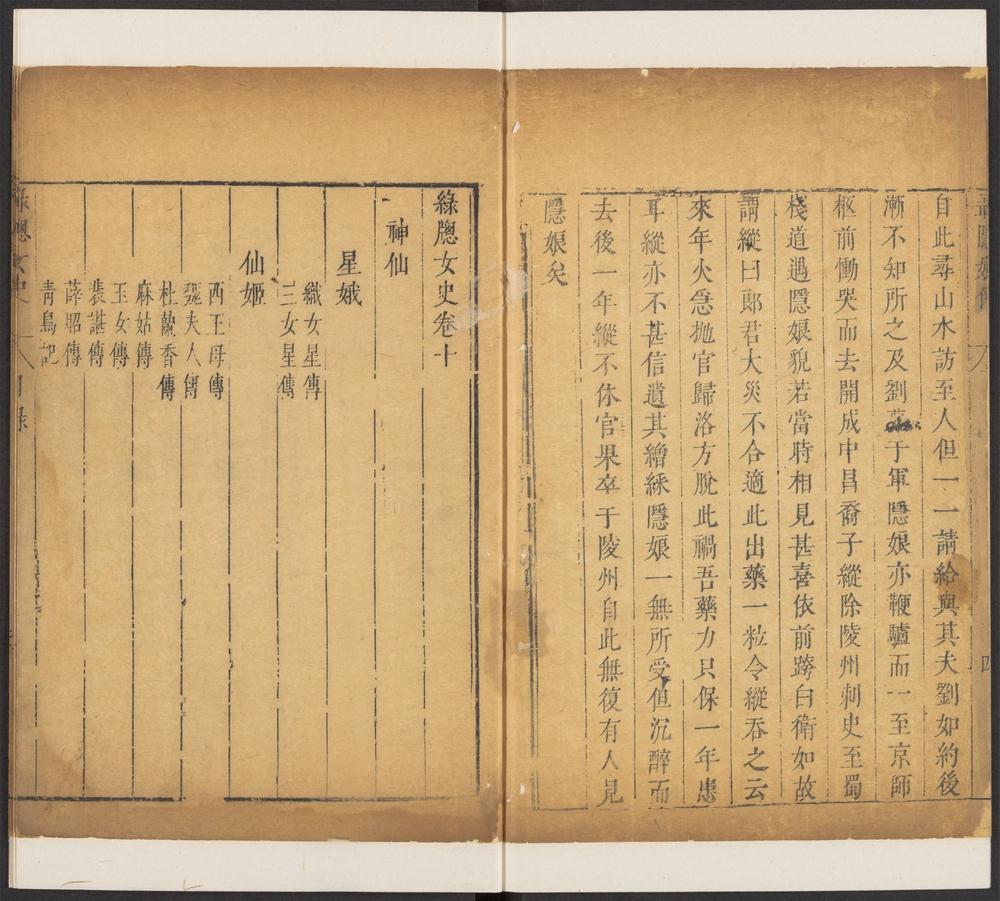 自此尋山水訪至人但一一請給與其夫劉如約後
漸不知所之及劉薨于軍隱娘亦鞭驢而一至京師
柩前慟哭而去開成中昌裔子縱除陵州刺史至蜀
棧道遇隱娘貌若當時相見甚喜依前跨白衛如故
謂縱曰郎君大災不合適此出藥一粒令縱吞之云
來年火急抛官歸洛方脫此禍吾藥力只保一年患
耳縱亦不甚信遺其繒綵隱娘一無所受但沉醉而
去後一年縱不休官果卒于陵州自此無復有人見
隱娘矣
四
綠牕女史卷十
神仙
星娥
織女星傳
三女星傳
仙姬
西王母傳
魏夫人傳
杜蘭香傳
麻姑傳
玉女傳
裴諶傳
薛昭傳
青鳥記
綠牕女史 目錄